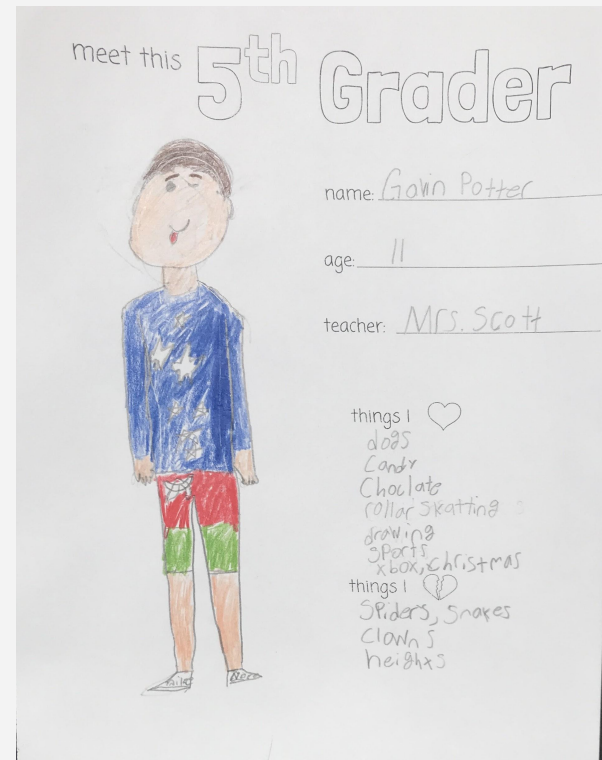 meet this 5th Grader
name: Gavin Potter
age: 11
teacher: Mrs. Scott
things I
dogs
Candy
Choclate
rollar skatting
drawing
sports
xbox, christmas
things I
Spiders, Snakes
Clowns
heights